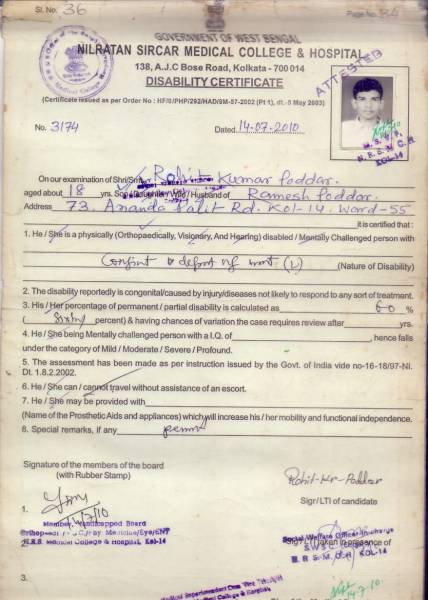 Sl. No. 36
Page No. 84
GOVERNMENT OF WEST BENGAL
NILRATAN SIRCAR MEDICAL COLLEGE & HOSPITAL
138, A.J.C Bose Road, Kolkata - 700 014
ATTESTED
DISABILITY CERTIFICATE
(Certificate issued as per Order No : HF/0/PHP/292/HAD/9M-57-2002 (Pt 1), dt. 8 May 2003)
No. 3174
Dated 14-07-2010
N. R. S. M. C. H
KOL-14
On our examination of Shri/Smt. Rohit Kumar Poddar
aged about 18 yrs. Son / Daughter / Wife / Husband of Ramesh Poddar
Address 73, Ananda Palit Rd. Kol-14 Ward-55
it is certified that :
1. He / She is a physically (Orthopaedically, Visionary, And Hearing) disabled / Mentally Challenged person with
(L) (Nature of Disability)
2. The disability reportedly is congenital/caused by injury/diseases not likely to respond to any sort of treatment.
3. His / Her percentage of permanent / partial disability is calculated as 60 %
(Sixty percent) & having chances of variation the case requires review after yrs.
4. He / She being Mentally challenged person with a I.Q. of , hence falls
under the category of Mild / Moderate / Severe / Profound.
5. The assessment has been made as per instruction issued by the Govt. of India vide no-16-18/97-NI.
Dt. 1.8.2.2002.
6. He / She can / cannot travel without assistance of an escort.
7. He / She may be provided with
(Name of the Prosthetic Aids and appliances) which will increase his / her mobility and functional independence.
8. Special remarks, if any
Signature of the members of the board
(with Rubber Stamp)
Rohit Kr. Poddar
Sigr/ LTI of candidate
1.
14/7/10
Member, Handicapped Board
Medicine/Eye/ENT
N.R.S Medical College & Hospital, Kol-14
Social Welfare Officer
Sig / LTI taken in presence of
N. R. S. M. C. H KOL-14
2.
3.
Medical Superintendent